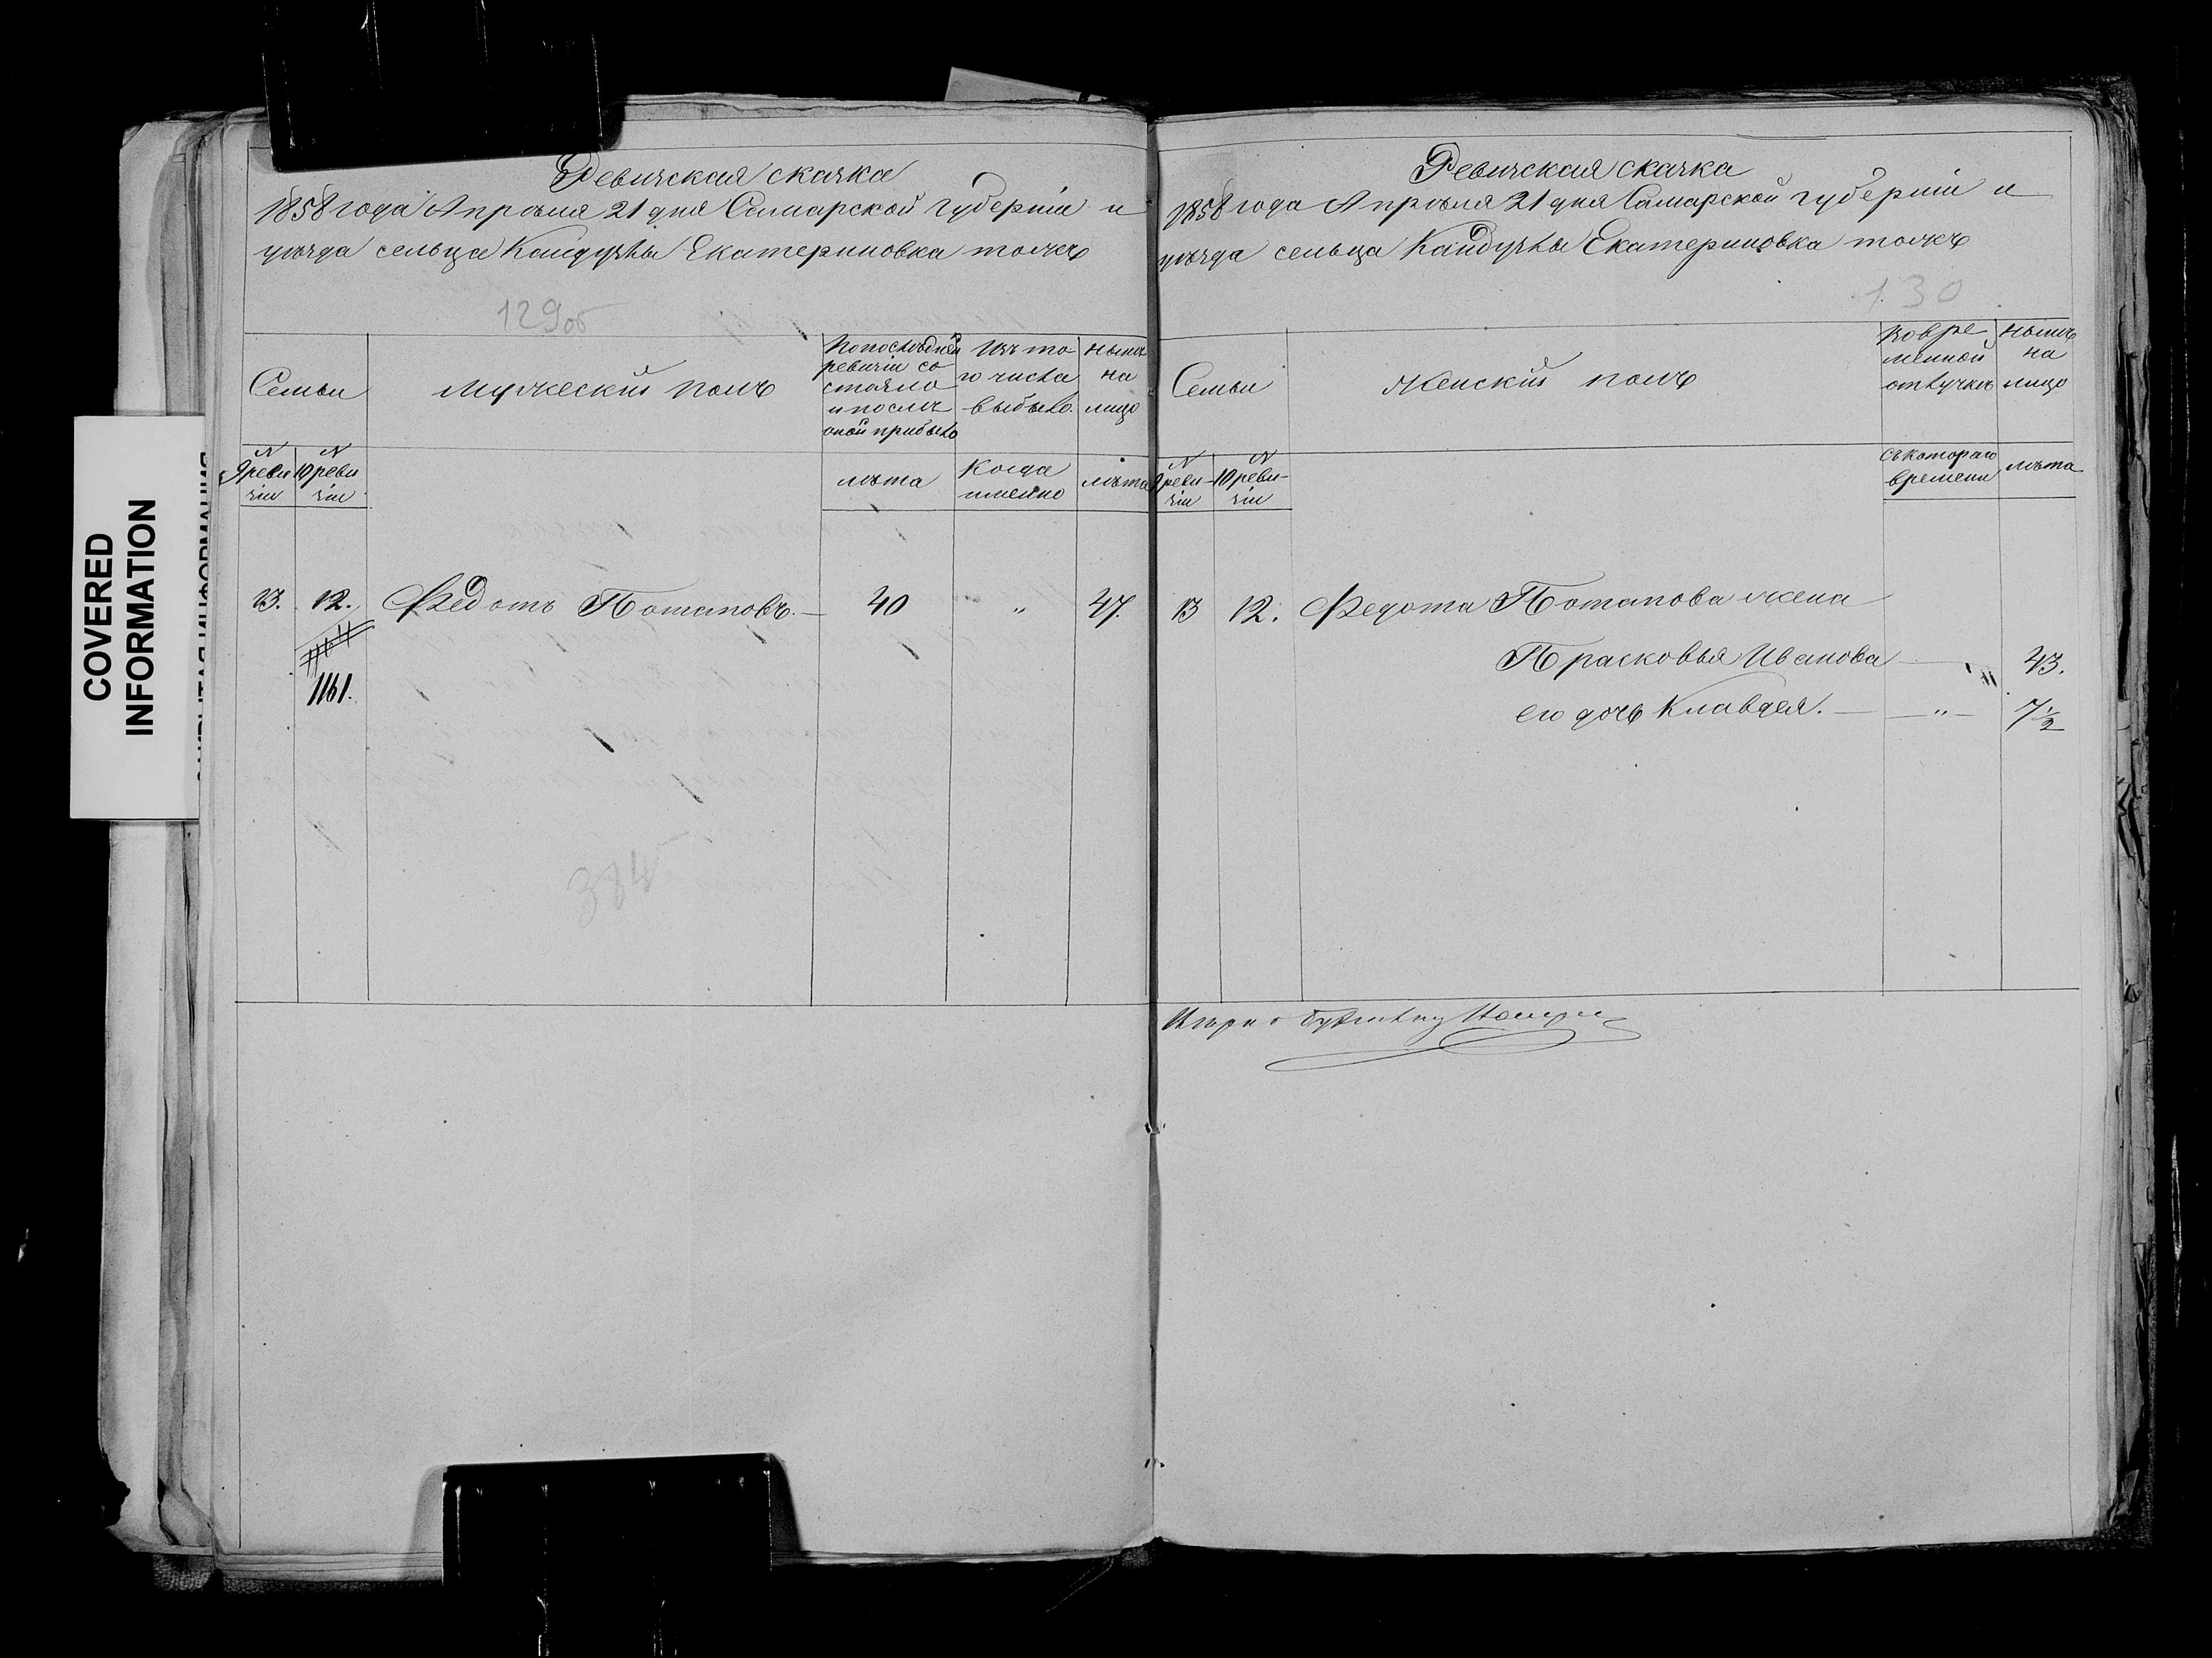 Ревизская сказка
1858 года Апреля 21 дня Самарской Губерніи и
уезда сельца Кандузлы Екатериновка тожъ
129об
Семьи
Мужескій полъ
По последней
ревизіи со
стояло
и после
оной прибыло
Изъ то
го числа
выбыло.
Ныне
на
лицо
N
9 реви
зіи
N
10 реви
зіи
лета
Когда
именно
лета
13. 12. Федотъ Потаповъ. — 40 " 47.
1161.
384
Ревизская сказка
1858 года Апреля 21 дня Самарской губерніи и
уезда сельца Кандузлы Екатериновка тожъ
130
Семьи
Женскій полъ
Во вре
менной
отлучке
Ныне
на
лицо
N
9 реви-
зіи
N
10 реви-
зіи
съ котораго
времени
лета
13 12. Федота Потапова жена
Прасковья Иванова — " 43.
его дочь Клавдея. — " — 7 1/2
COVERED
INFORMATION